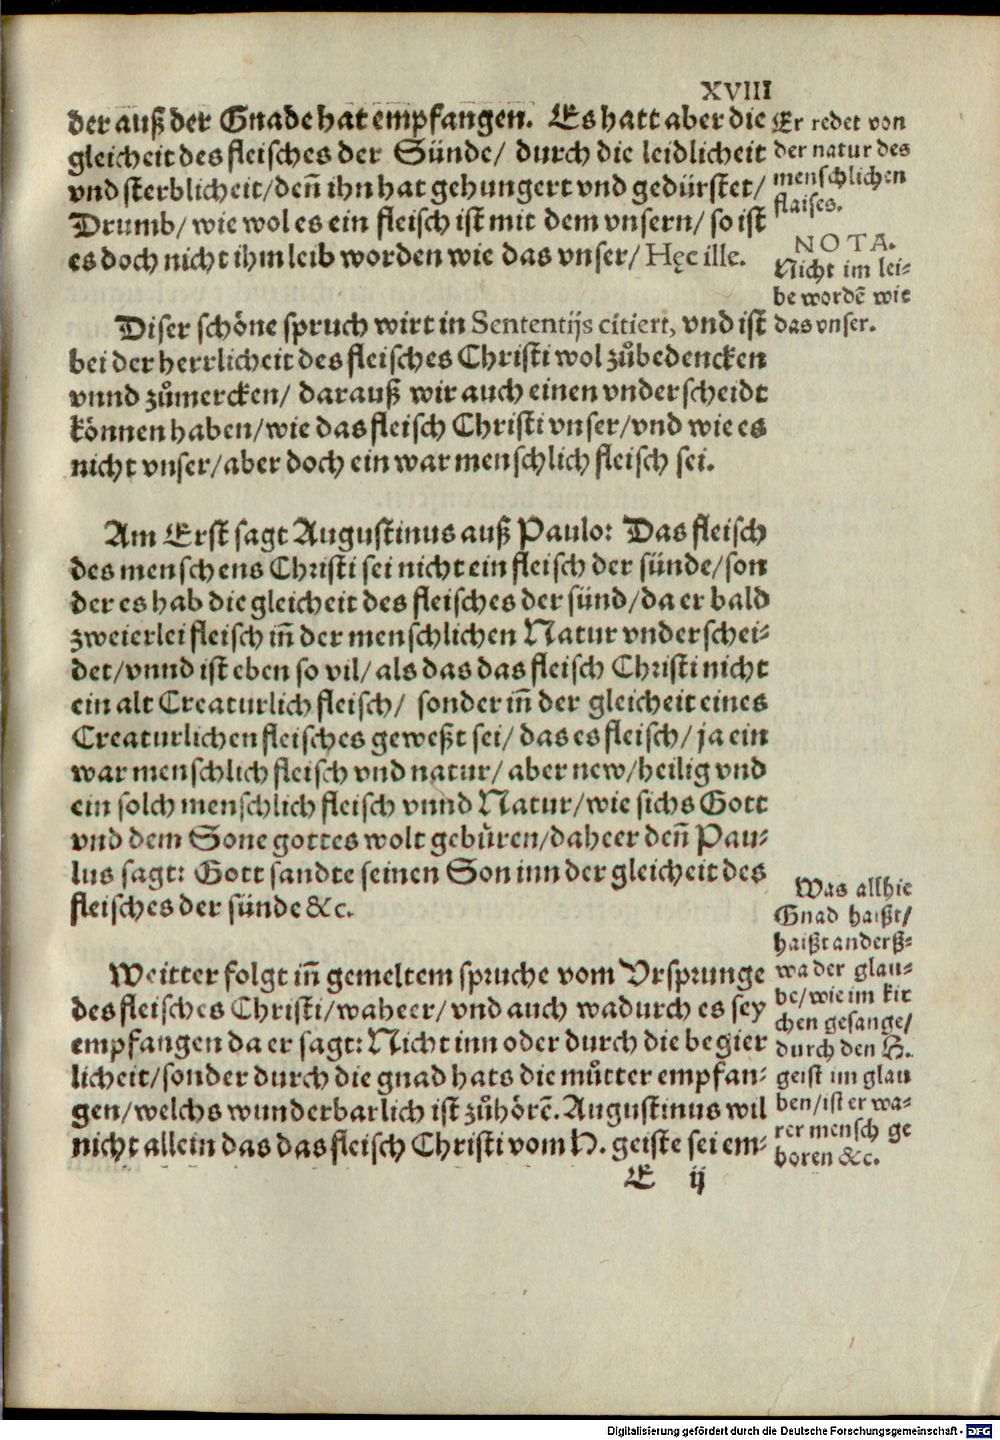 XVIII
der auß der Gnade hat empfangen. Es hatt aber die
gleicheit des fleisches der Sünde/ durch die leidlicheit
vnd sterblicheit/den̄ ihn hat gehungert vnd gedürstet/
Drumb/ wie wol es ein fleisch ist mit dem vnsern/ so ist
es doch nicht ihm leib worden wie das vnser/ Hęc ille.
Er redet von
der natur des
menschlichen
flaises.
NOTA.
Nicht im lei-
be wordē wie
das vnser.
Diser schöne spruch wirt in Sententijs citiert, vnd ist
bei der herrlicheit des fleisches Christi wol zůbedencken
vnnd zůmercken/ darauß wir auch einen vnderscheidt
können haben/wie das fleisch Christi vnser/vnd wie es
nicht vnser/aber doch ein war menschlich fleisch sei.
Am Erst sagt Augustinus auß Paulo: Das fleisch
des menschens Christi sei nicht ein fleisch der sünde/son
der es hab die gleicheit des fleisches der sünd/da er bald
zweierlei fleisch in̄ der menschlichen Natur vnderschei-
det/vnnd ist eben so vil/ als das das fleisch Christi nicht
ein alt Creaturlich fleisch/ sonder in̄ der gleicheit eines
Creaturlichen fleisches geweßt sei/ das es fleisch/ ja ein
war menschlich fleisch vnd natur/ aber new/heilig vnd
ein solch menschlich fleisch vnnd Natur/wie sichs Gott
vnd dem Sone gottes wolt gebůren/daheer den̄ Pau-
lus sagt: Gott sandte seinen Son inn der gleicheit des
fleisches der sünde &c.
Weitter folgt in̄ gemeltem spruche vom Vrsprunge
des fleisches Christi/waheer/vnd auch wadurch es sey
empfangen da er sagt: Nicht inn oder durch die begier
licheit/sonder durch die gnad hats die můtter empfan-
gen/welchs wunderbarlich ist zůhörē. Augustinus wil
nicht allein das das fleisch Christi vom H. geiste sei em-
Was allhie
Gnad haißt/
haißt anderß-
wa der glau-
be/wie im kir
chen gesange/
durch den H.
geist im glau
ben/ist er wa-
rer mensch ge
boren &c.
E ij
Digitalisierung gefördert durch die Deutsche Forschungsgemeinschaft - DFG